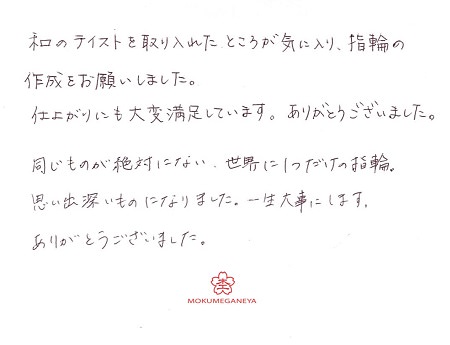 和のテイストを取り入れたところが気に入り、指輪の
作成をお願いしました。
仕上がりにも大変満足しています。ありがとうございました。
同じものが絶対にない、世界に1つだけの指輪。
思い出深いものになりました。一生大事にします。
ありがとうございました。
MOKUMEGANEYA